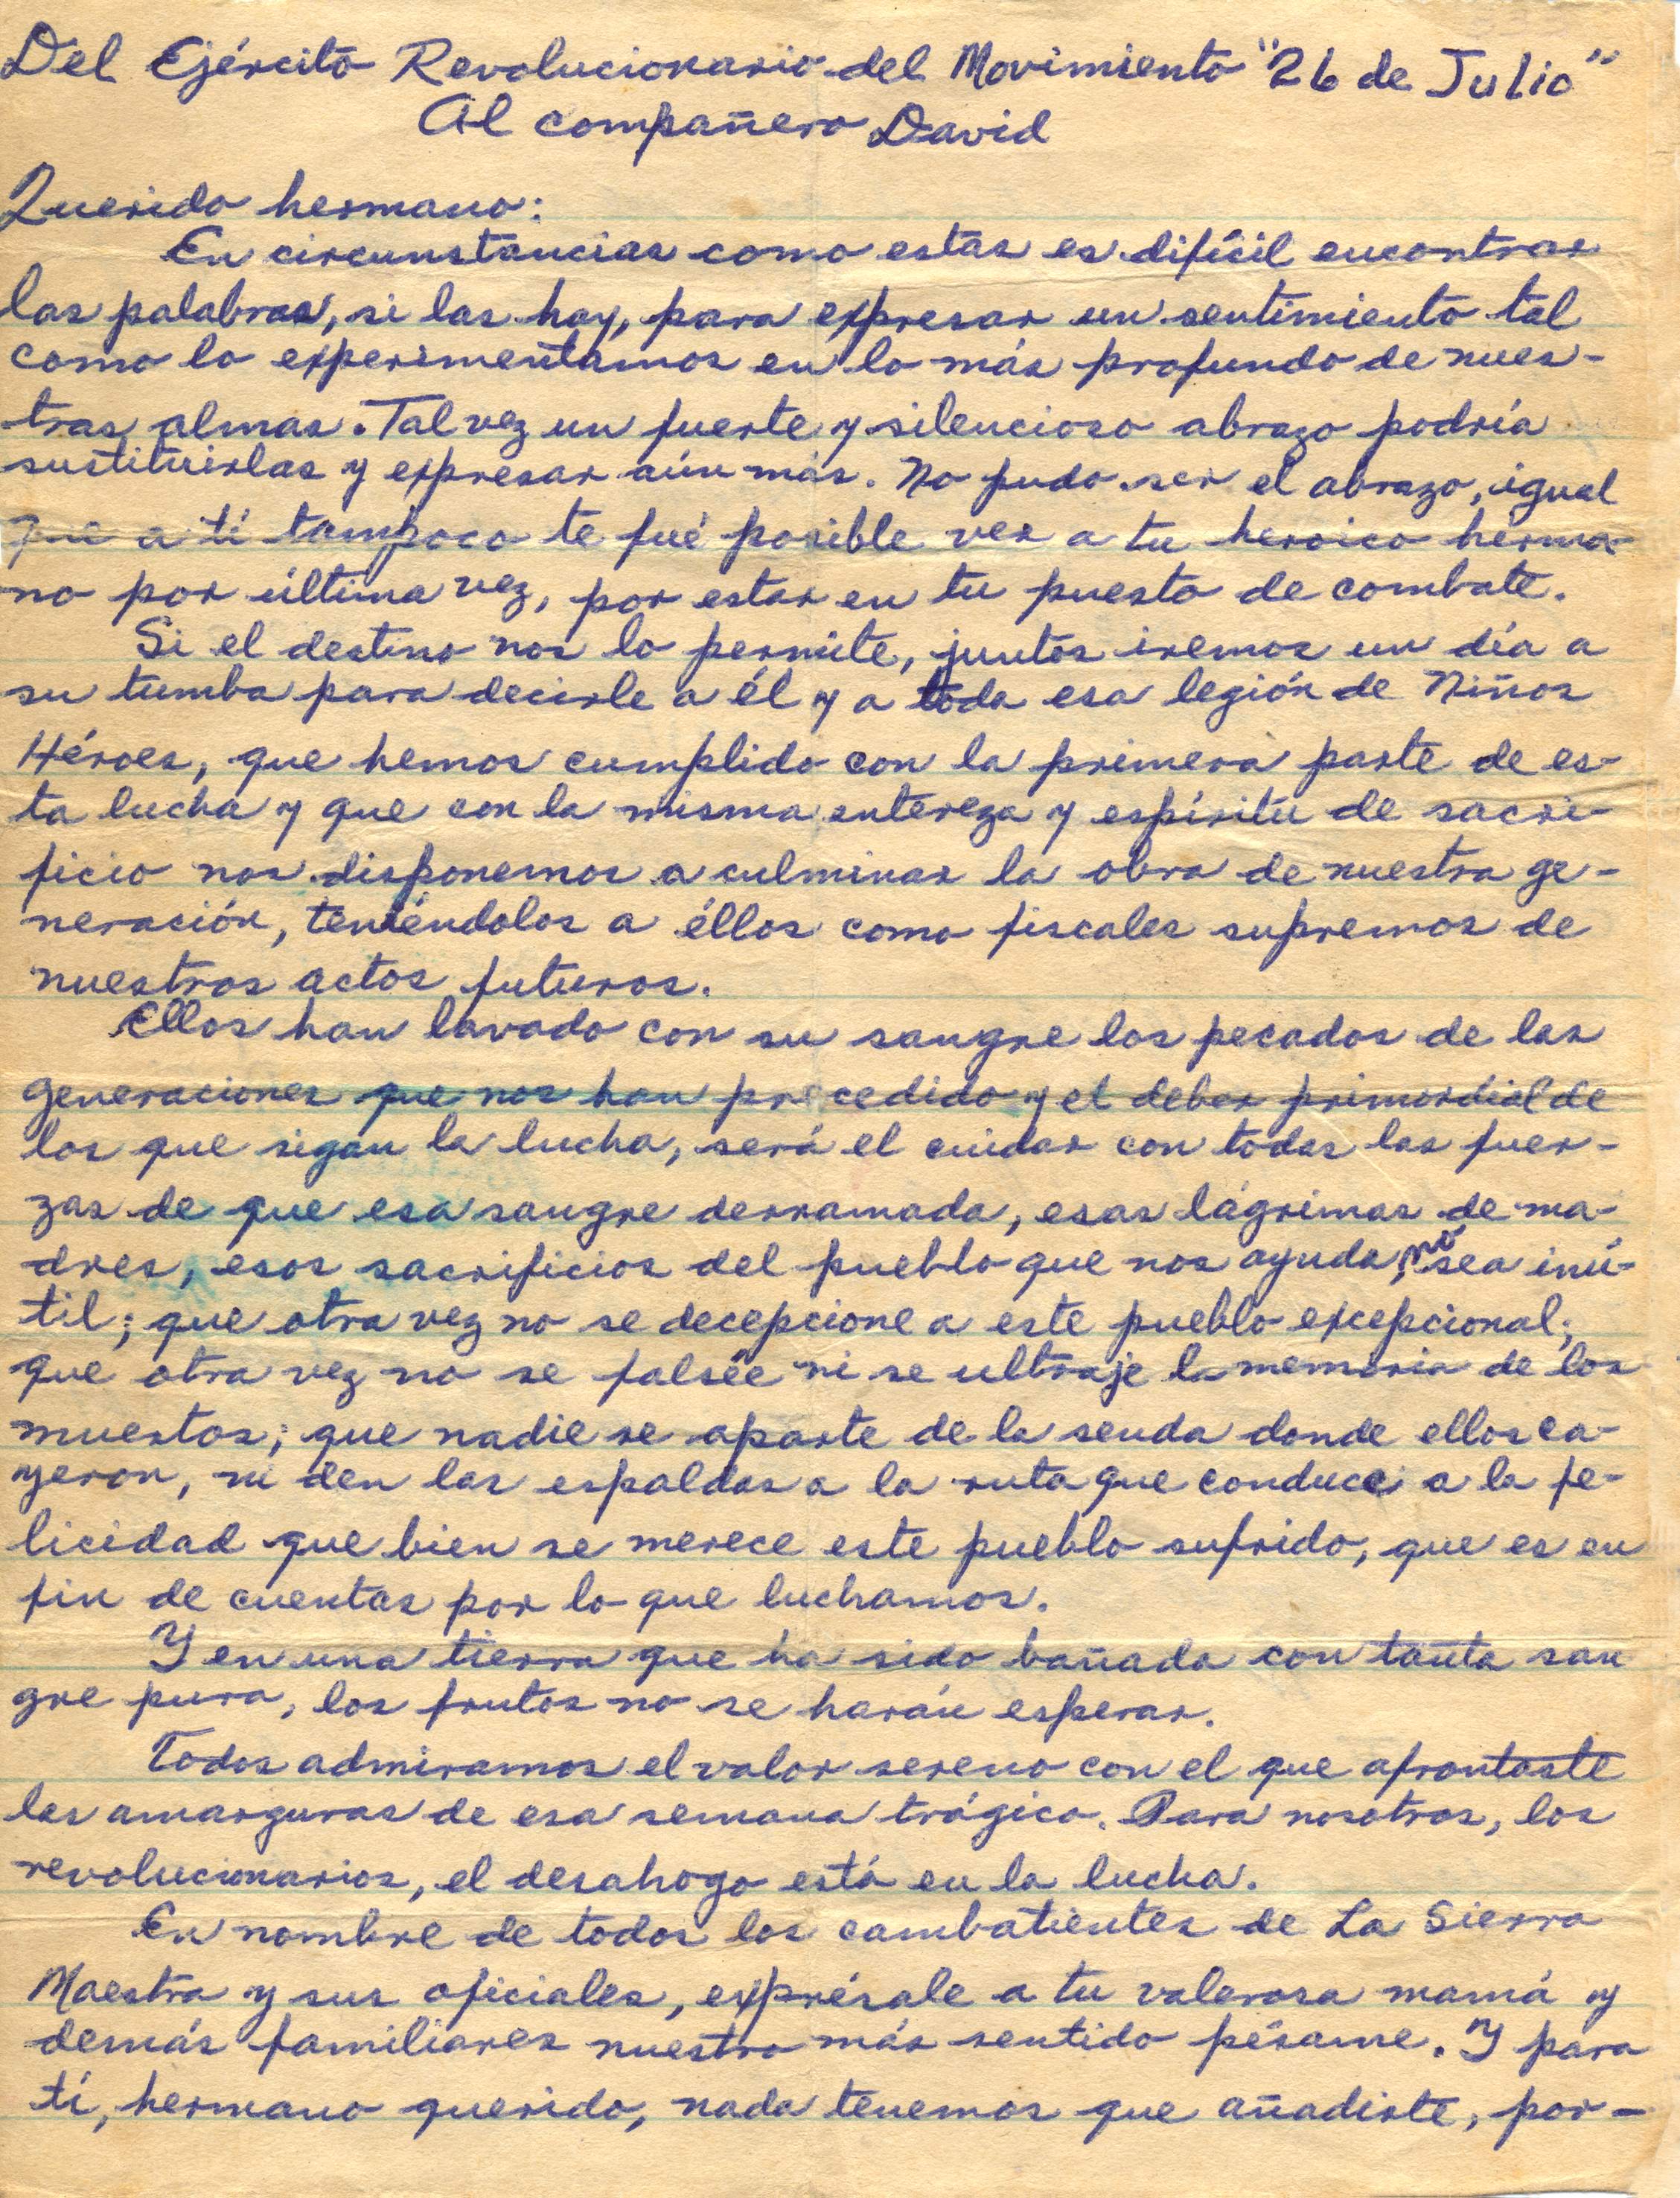 Del Ejército Revolucionario del Movimiento "26 de Julio"
Al compañero David
Querido hermano:
En circunstancias como estas es difícil encontrar
las palabras, si las hay, para expresar un sentimiento tal
como lo experimentamos en lo más profundo de nues-
tras almas. Tal vez un fuerte y silencioso abrazo podría
sustituirlas y expresar aún más. No pudo ser el abrazo, igual
que a tí tampoco te fué posible ver a tu heroico herma-
no por última vez, por estar en tu puesto de combate.
Si el destino nos lo permite, juntos iremos un día a
su tumba para decirle a él y a toda esa legión de Niños
Héroes, que hemos cumplido con la primera parte de es-
ta lucha y que con la misma entereza y espíritu de sacri-
ficio nos disponemos a culminar la obra de nuestra ge-
neración, teniéndolos a éllos como fiscales supremos de
nuestros actos futuros.
Ellos han lavado con su sangre los pecados de las
generaciones que nos han precedido y el deber primordial de
los que sigan la lucha, será el cuidar con todas las fuer-
zas de que esa sangre derramada, esas lágrimas de ma-
dres, esos sacrificios del pueblo que nos ayuda, no sea inú-
til; que otra vez no se decepcione a este pueblo excepcional;
que otra vez no se falsée ni se ultraje la memoria de los
muertos; que nadie se aparte de la senda donde ellos ca-
yeron, ni den las espaldas a la ruta que conduce a la fe-
licidad que bien se merece este pueblo sufrido, que es en
fin de cuentas por lo que luchamos.
Y en una tierra que ha sido bañada con tanta san
gre pura, los frutos no se harán esperar.
Todos admiramos el valor sereno con el que afrontaste
las amarguras de esa semana trágica. Para nosotros, los
revolucionarios, el desahogo está en la lucha.
En nombre de todos los combatientes de La Sierra
Maestra y sus oficiales, exprésale a tu valerosa mamá y
demás familiares nuestro más sentido pésame. Y para
tí, hermano querido, nada tenemos que añadirte, por-